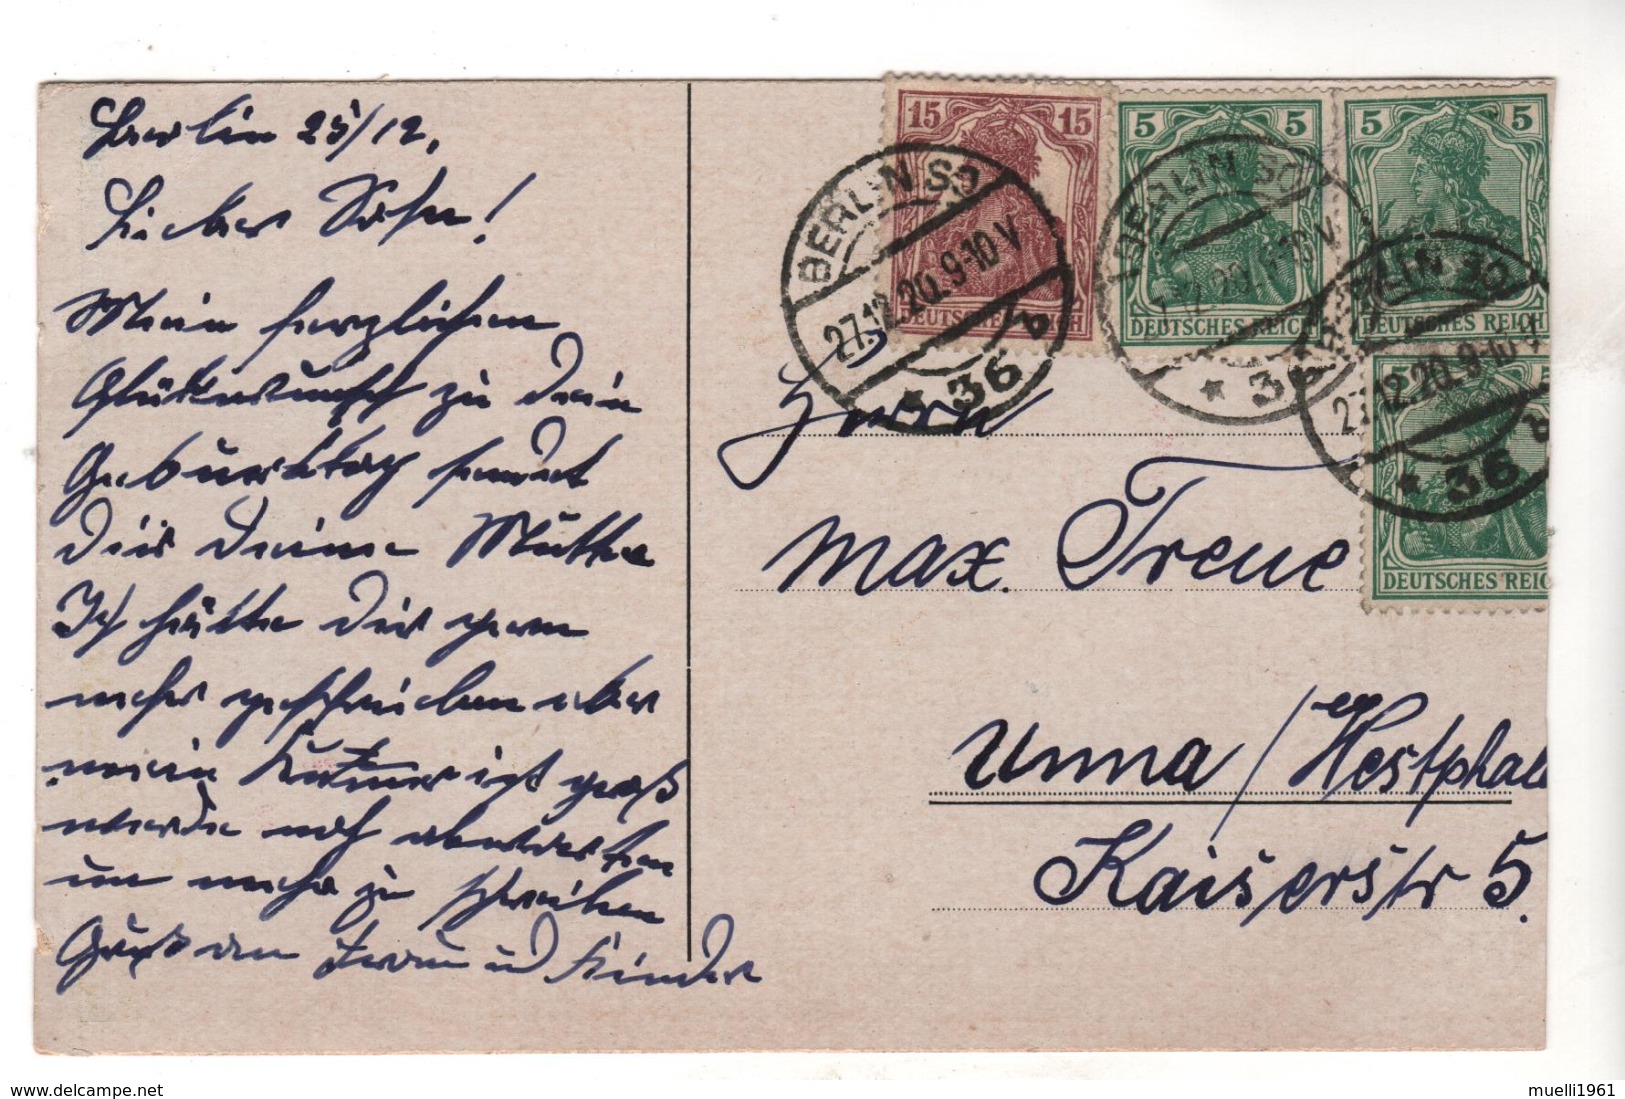 Berlin 25/12.
Lieber Sohn!
Mein herzlichen
Glückwunsch zu dein
Geburtstag sendet
Dir Deine Mutter
Ich hätte Dir gern
mehr geschrieben aber
mein ist groß
werde noch
um mehr zu schreiben
Gruß an Frau und Kinder
15 15
DEUTSCHES REICH
5 5
DEUTSCHES REICH
5 5
DEUTSCHES REICH
5
DEUTSCHES REIC
BERLIN SO
27.12.20. 9-10 V
* 36 a
BERLIN SO
12.20. 9-10 V
* 36
BERLIN SO
27.12.20. 9-10 V
* 36 a
Herrn
Max. Treue
Unna / Westphal
Kaiserstr 5.
www.delcampe.net
muelli1961